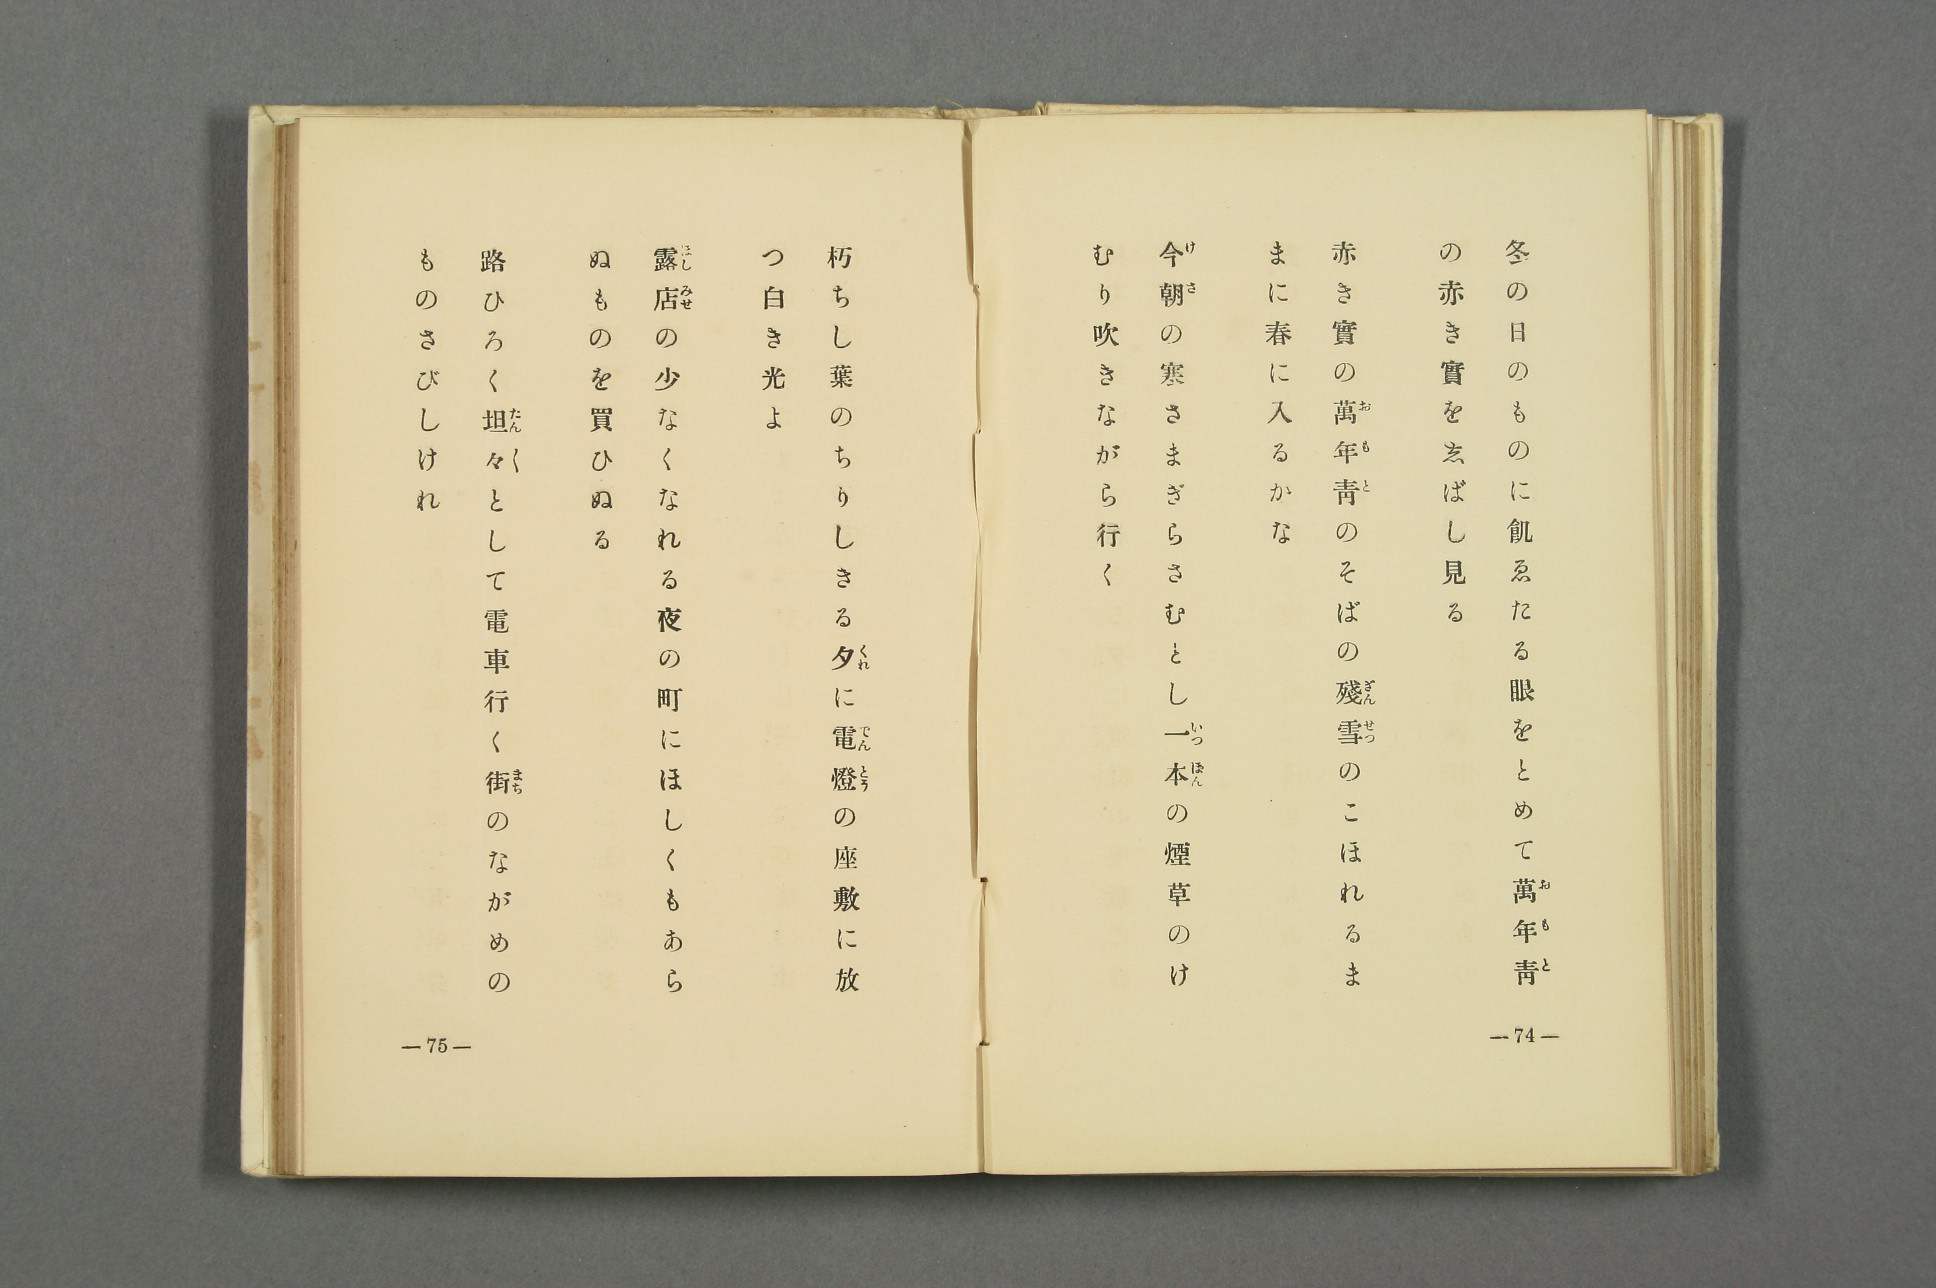 冬の日のものに飢ゑたる眼をとめて萬年靑
の赤き實を志ばし見る
赤き實の萬年靑のそばの殘雪のこほれるま
まに春に入るかな
今朝の寒さまぎらさむとし一本の煙草のけ
むり吹きながら行く
—74—
朽ちし葉のちりしきる夕に電燈の座敷に放
つ白き光よ
露店の少なくなれる夜の町にほしくもあら
ぬものを買ひぬる
路ひろく坦々として電車行く街のながめの
ものさびしけれ
—75—